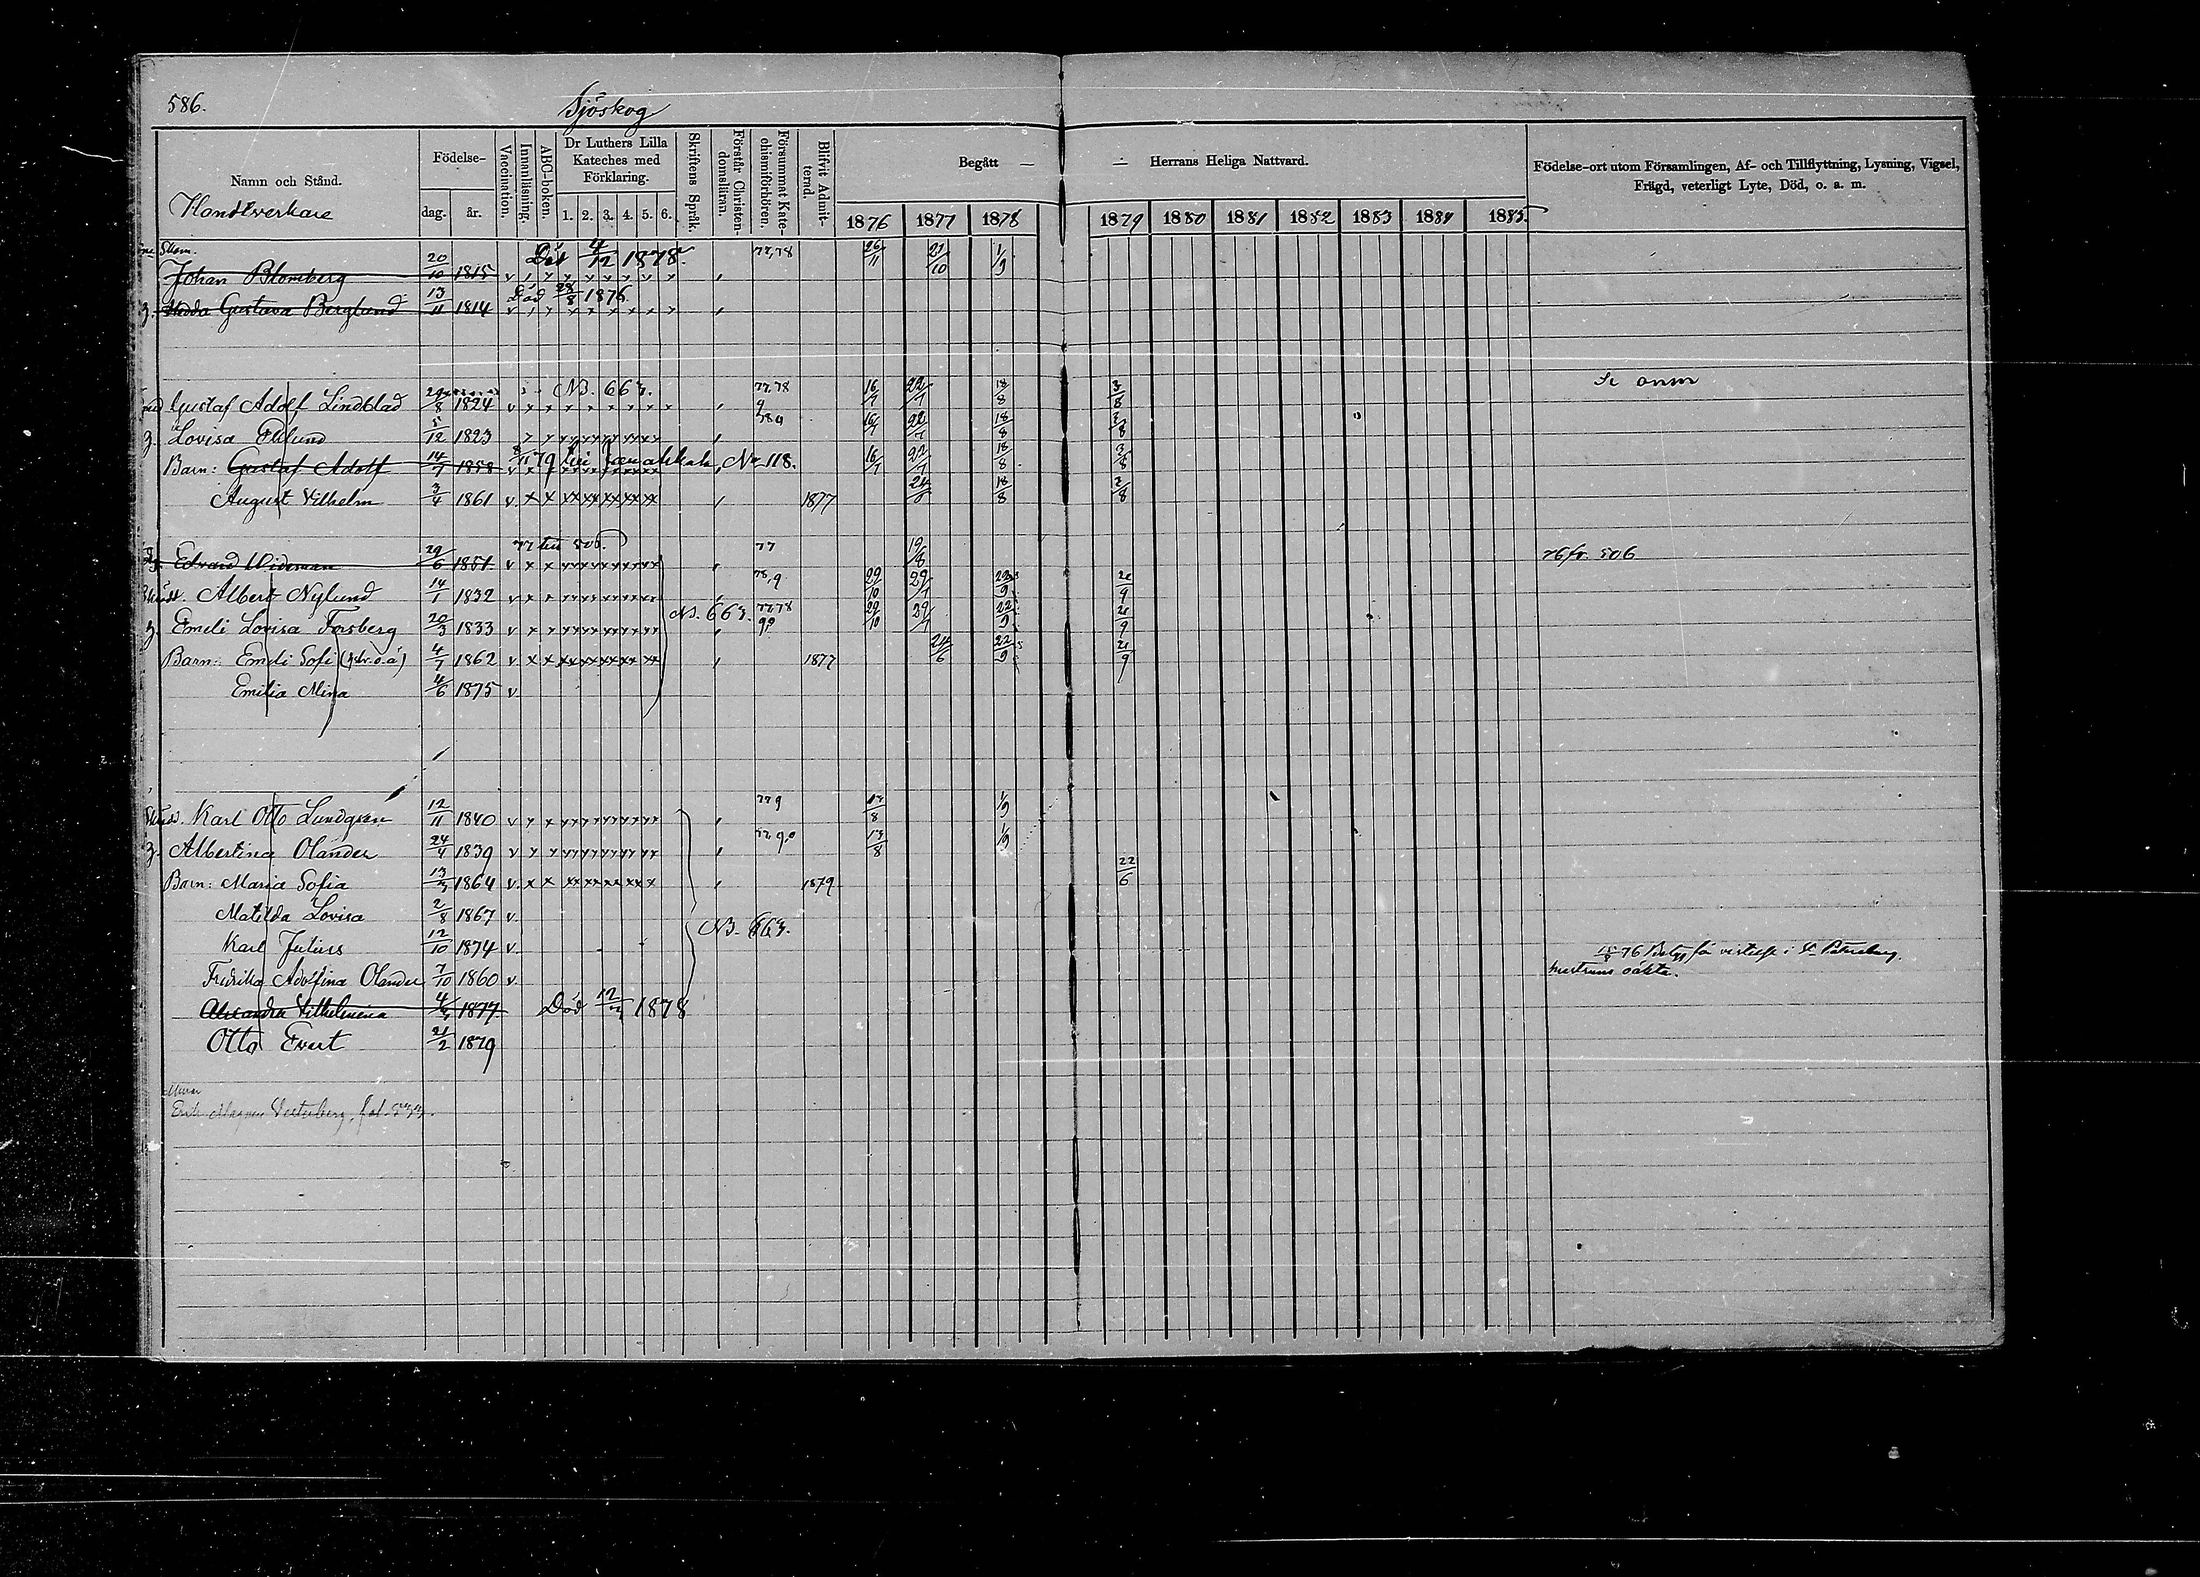 586.
Sjöskog
Namn och Stånd.
Handtverkare
Födelse-
dag.
år.
Vaccination.
Innanläsning.
ABC-boken.
Dr Luthers Lilla
Kateches med
Förklaring.
1. 2. 3. 4. 5. 6.
Skriftens Språk.
Förstår Christen-
domsläran.
Försummat Kate-
chismiförhören.
Blifvit Admit-
terad.
Begått —
— Herrans Heliga Nattvard.
1876 1877 1878 1879 1880 1881 1882 1883 1884 1885
Födelse-ort utom Församlingen, Af- och Tillflyttning, Lysning, Vigsel,
Frägd, veterligt Lyte, Död, o. a. m.
Skom.
Johan Blomberg 20/10 1815 v Död 4/12 1878 77,78 26/11 21/10 1/9
Hedda Gustava Berglund 13/11 1814 v Död 28/8 1876
Gustaf Adolf Lindblad 29/8 1824 v NB. 663. 77,78 16/7 22/7 18/8 3/8
Lovisa Eklund 5/12 1823 16/7 22/7 18/8 3/8
Barn: Gustaf Adolf 14/7 1858 v 79 No 118. 16/7 22/7 18/8 3/8
August Vilhelm 3/4 1861 v 1877 24/6 18/8 3/8
Edvard Wideman 29/6 1851 v 77 till 506. 77 19/8 76 fr. 506
Albert Nylund 14/1 1832 v 78,9 29/10 29/7 22/9 21/9
Emeli Lovisa Forsberg 20/3 1833 v NB. 663. 77,78 29/10 29/7 22/9 21/9
Barn: Emeli Sofi 4/7 1862 v 1877 24/6 22/9 21/9
Emilia Mina 4/6 1875 v
Karl Otto Lundgren 12/11 1840 v 77 9 13/8 1/9
Albertina Olander 24/4 1839 v 13/8 1/9
Barn: Maria Sofia 13/3 1864 v 1879 22/6
Matilda Lovisa 2/8 1867 v.
NB. 663.
Karl Julius 12/10 1874 v. 76 Betyg för vistelse i St Petersburg.
Fredrika Adolfina Olander 7/10 1860 v hustruns oäkta.
Alexandra Vilhelmina 1877 Död 12/3 1878
Otto Evert 21/2 1879